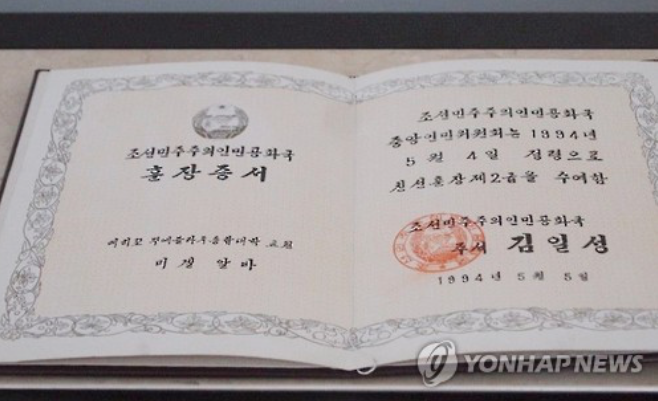 조선민주주의인민공화국
훈장증서
메히꼬 뿌에블라주음악대학 교원
미겔 알바
조선민주주의인민공화국
중앙인민위원회는 1994년
5월 4일 정령으로
친선훈장제2급을 수여함
조선민주주의인민공화국
주석 김일성
1994년 5월 5일
YONHAP NEWS